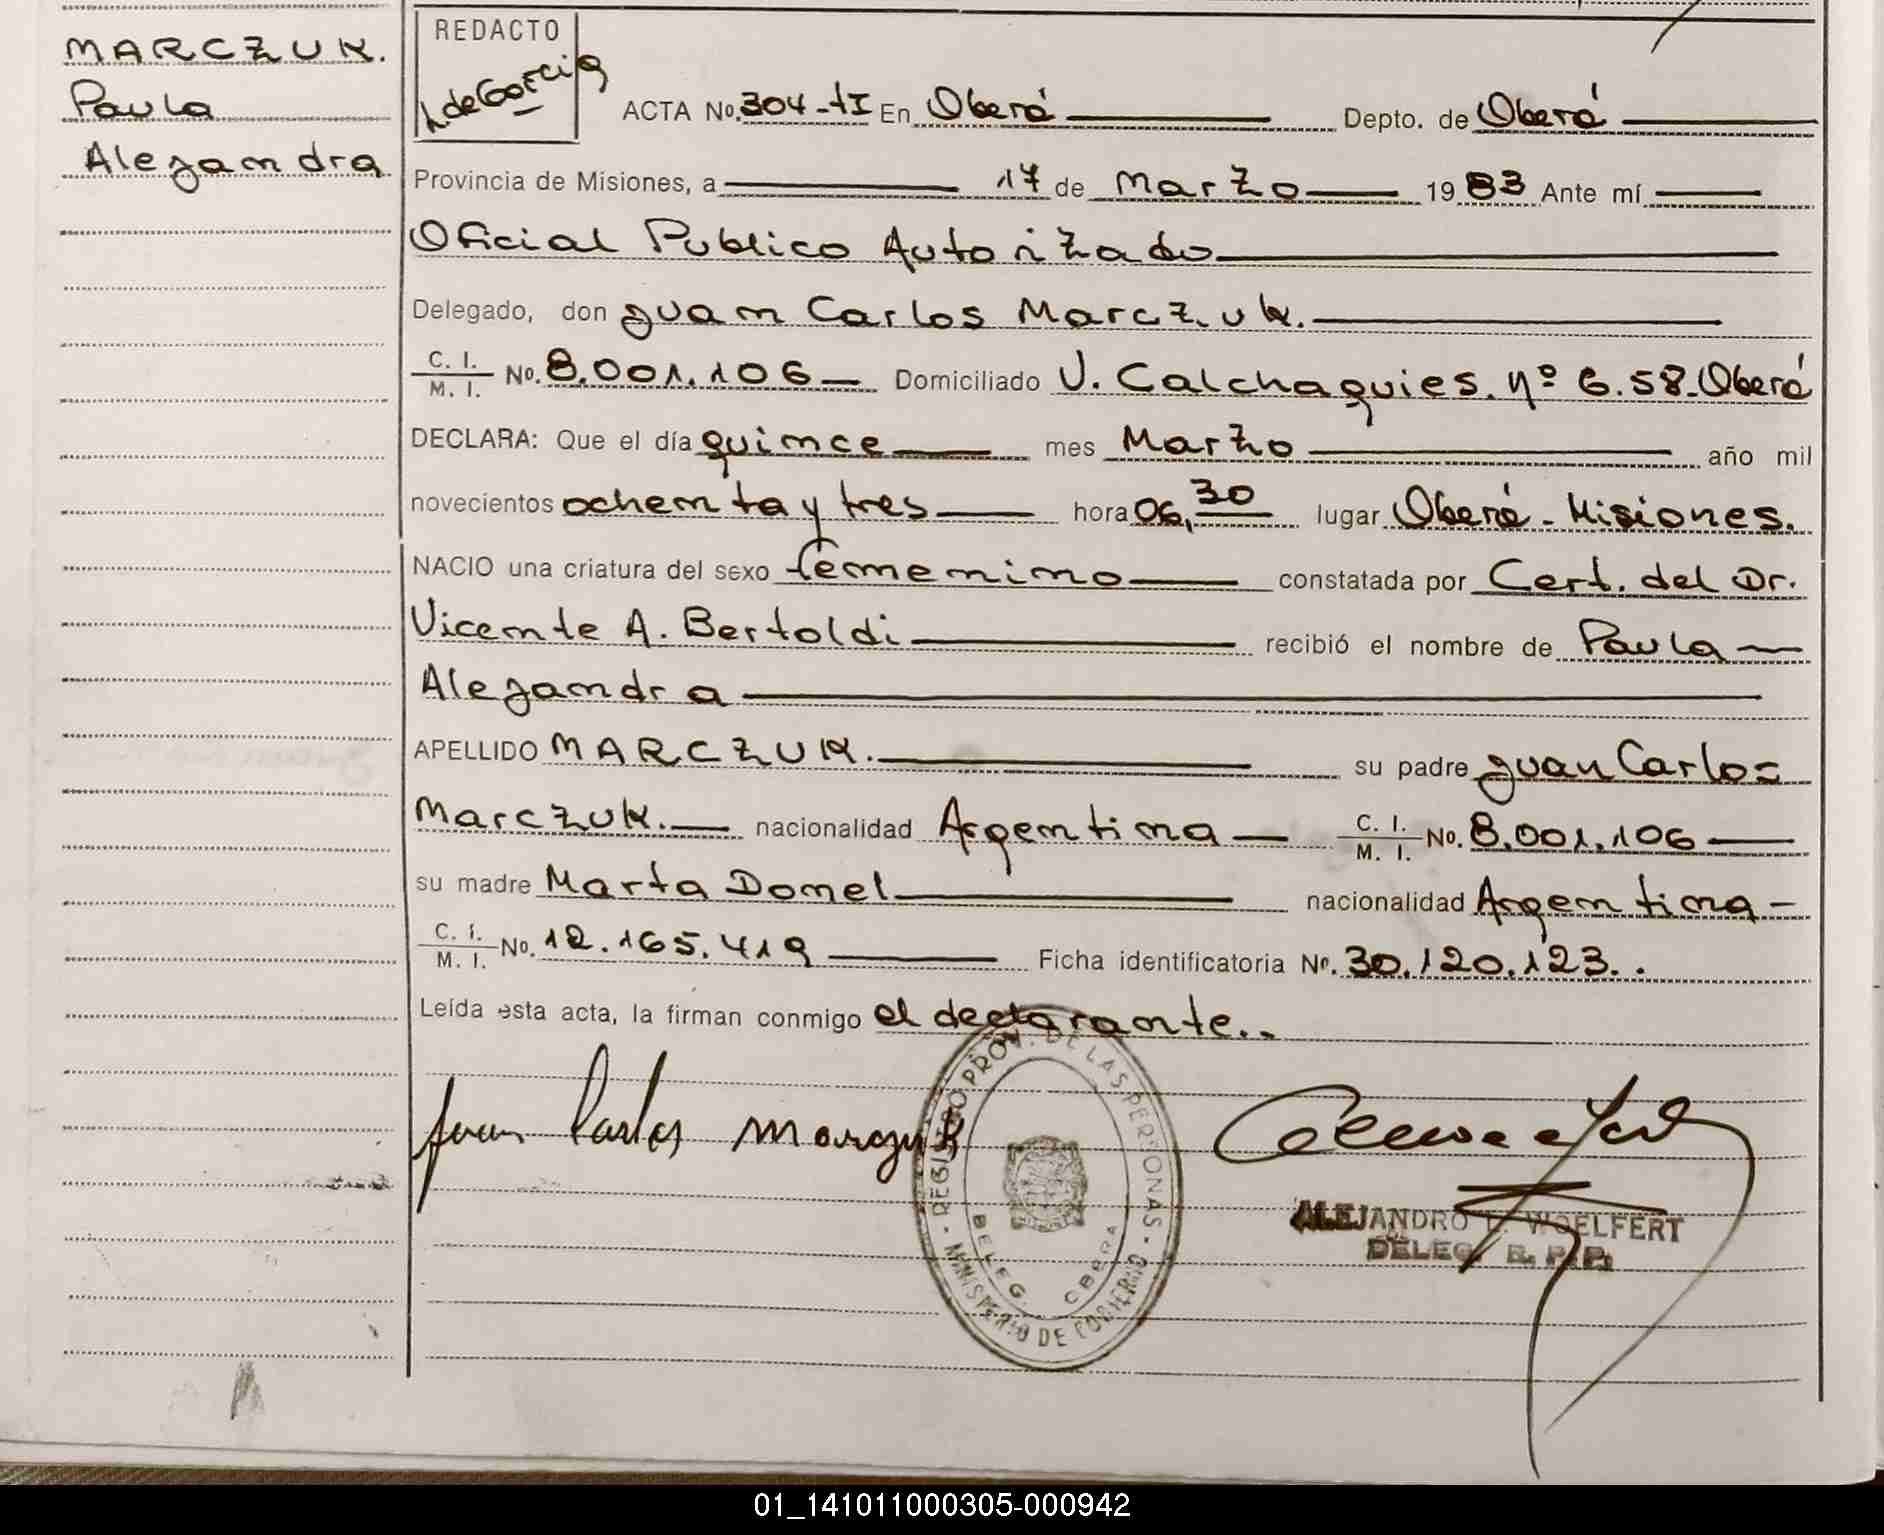 MARCZUK.
Paula
Alejandra
REDACTO
L de Garcia
ACTA No. 304-tI En Oberá Depto. de Oberá
Provincia de Misiones, a 17 de Marzo 1983 Ante mí
Oficial Publico Autorizado
Delegado, don Juan Carlos Marczuk.
C. I. / M. I. No. 8.001.106 Domiciliado V. Calchaquies. Nº 6.58-Oberá
DECLARA: Que el día quince mes Marzo año mil
novecientos ochenta y tres hora 06,30 lugar Oberá - Misiones.
NACIO una criatura del sexo femenino constatada por Cert. del Dr.
Vicente A. Bertoldi recibió el nombre de Paula
Alejandra
APELLIDO MARCZUK. su padre Juan Carlos
Marczuk. nacionalidad Argentina C. I. / M. I. No. 8.001.106
su madre Marta Donel nacionalidad Argentina -
C. I. / M. I. No. 12.165.419 Ficha identificatoria No. 30.120.123..
Leída esta acta, la firman conmigo el declarante..
Juan Carlos Marczuk
- REGISTRO PROV. DE LAS PERSONAS -
MINISTERIO DE GOBIERNO
DELEG. OBERA
ALEJANDRO L. WOELFERT
DELEG. R. P. P.
01_141011000305-000942